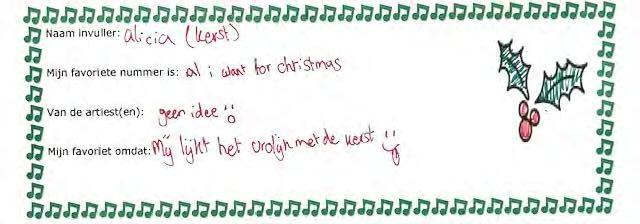 Naam invuller: alicia (kerst)
Mijn favoriete nummer is: al i want for christmas
Van de artiest(en): geen idee
Mijn favoriet omdat: Mij lijkt het vrolijk met de kerst